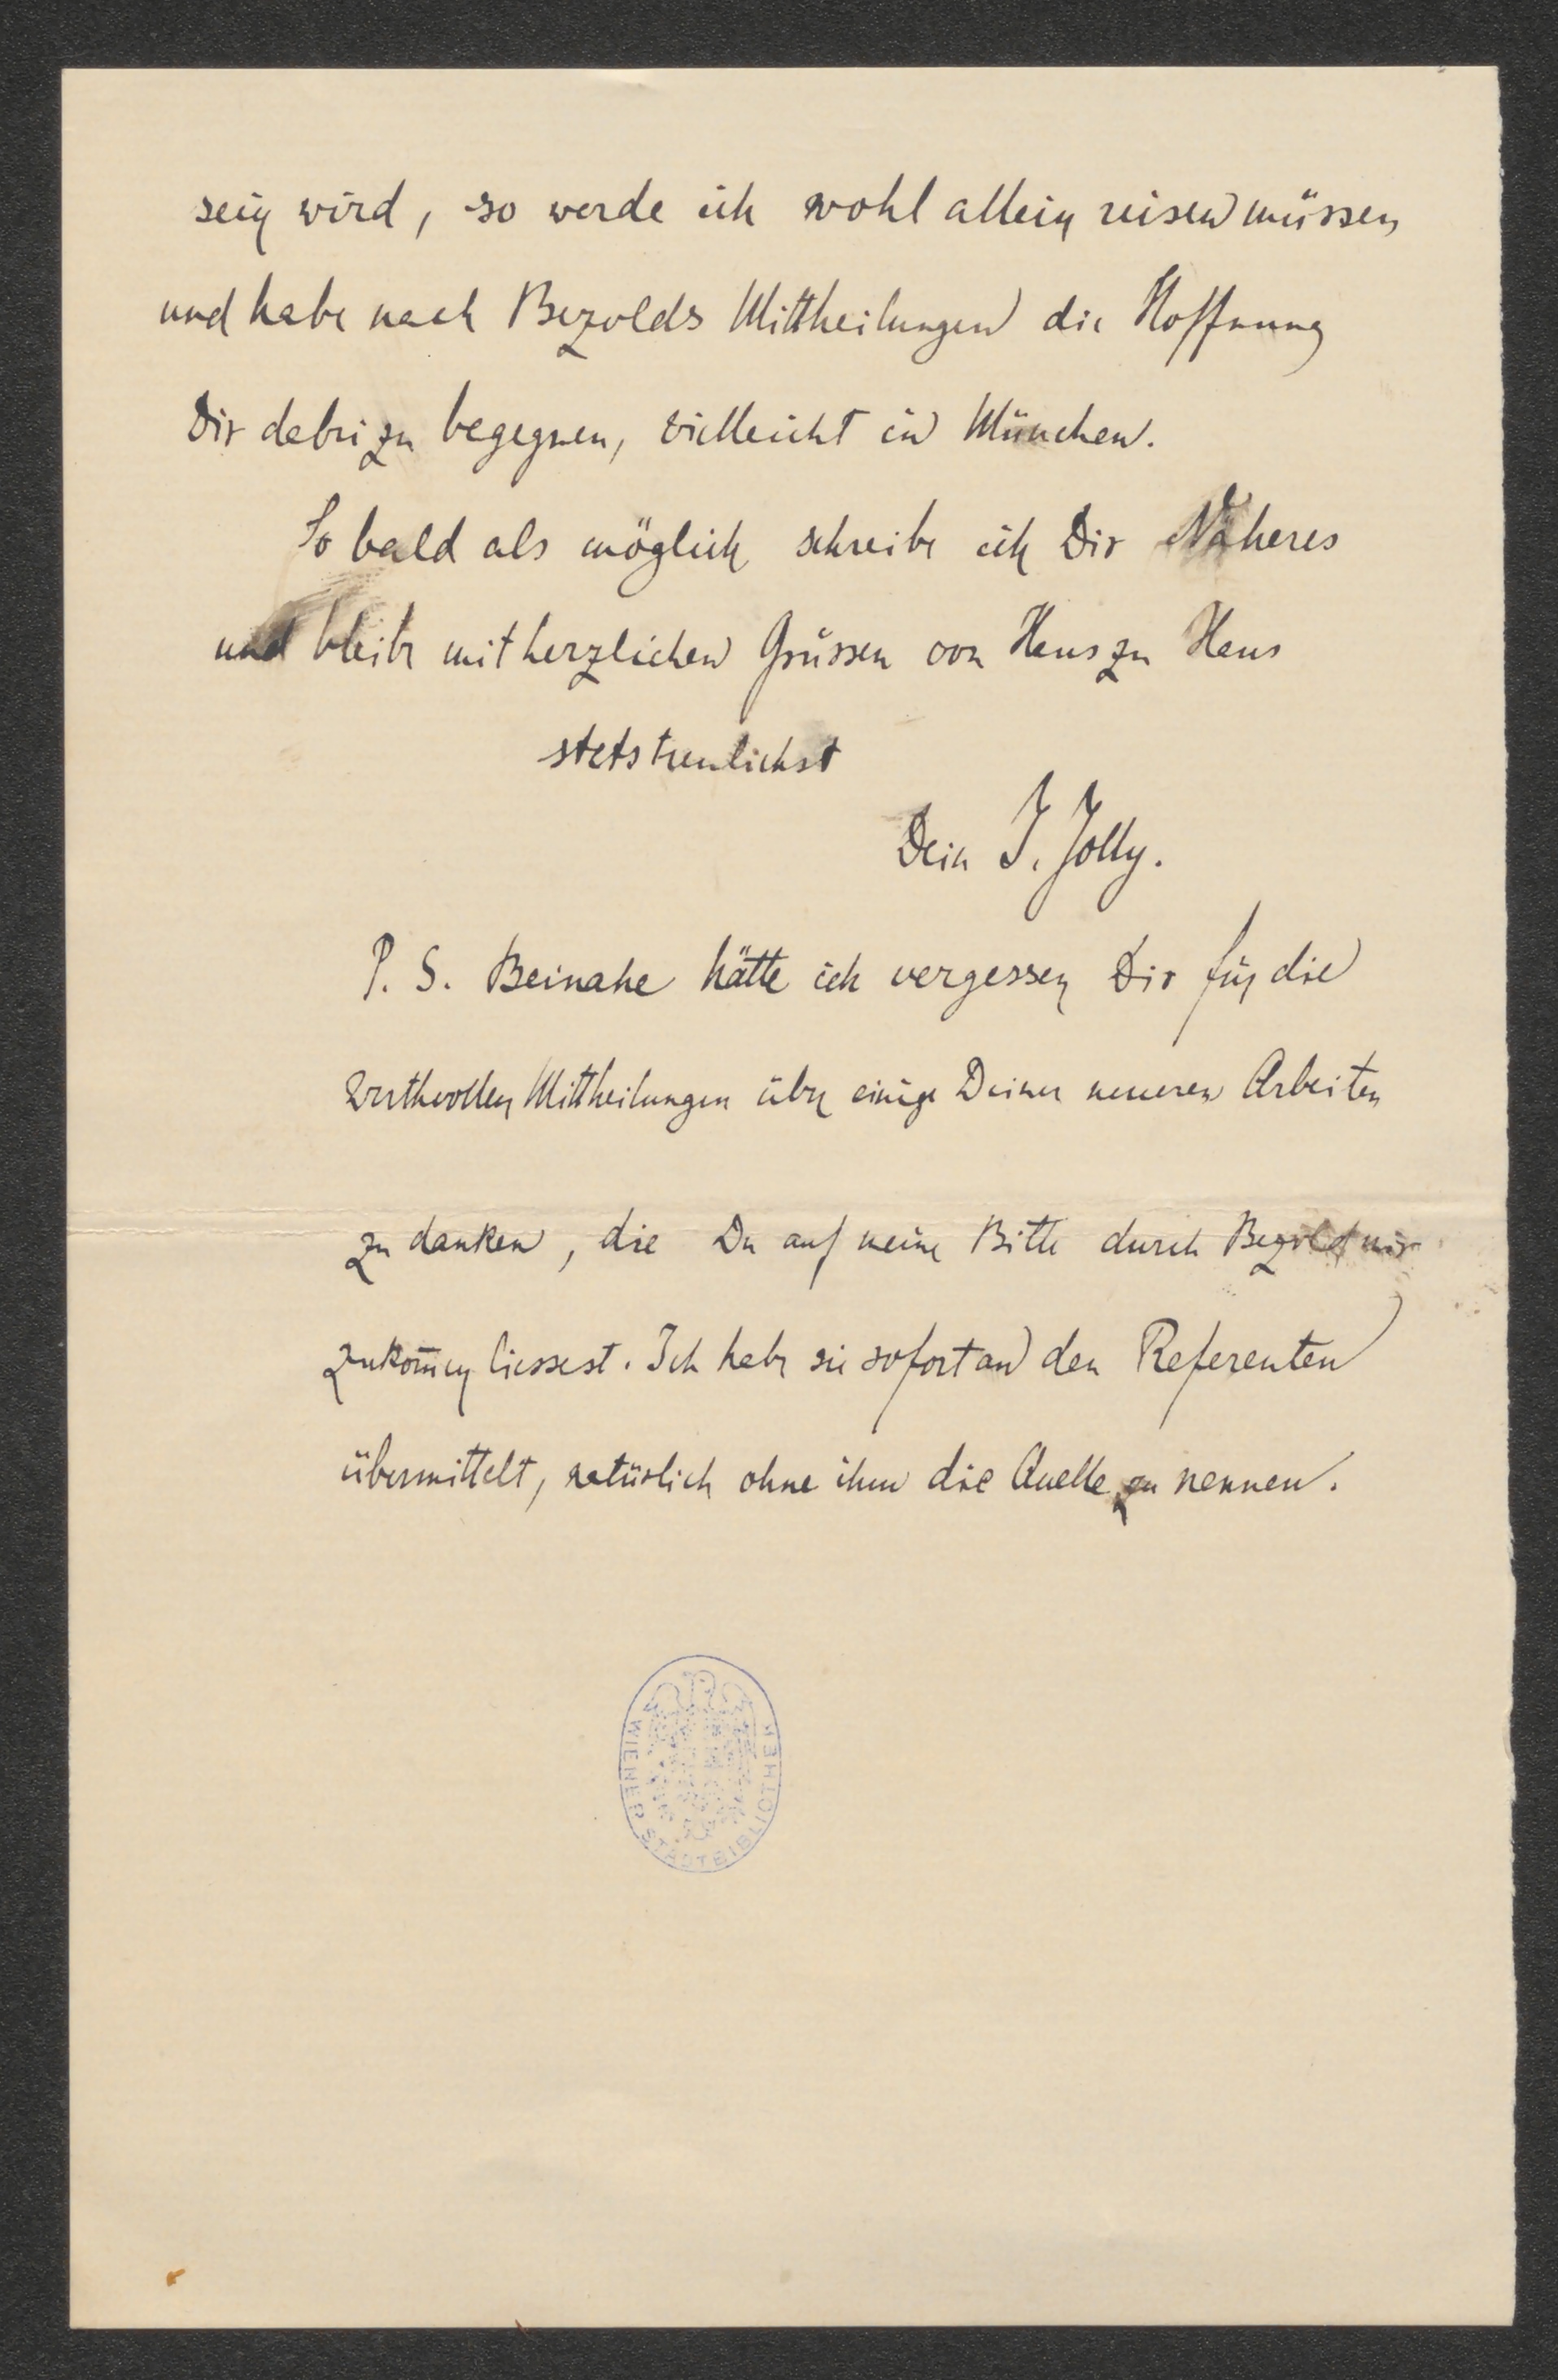 sein wird, so werde ich wohl allein reisen müssen
und habe nach Bezolds Mittheilungen die Hoffnung
Dir dabei zu begegnen, vielleicht in München.
So bald als möglich schreibe ich Dir Näheres
und bleibe mit herzlichen Grüssen von Haus zu Haus
stets treulichst
Dein J. Jolly.
P. S. Beinahe hätte ich vergessen Dir für die
werthvollen Mittheilungen über einige Deiner neueren Arbeiten
zu danken, die Du auf meine Bitte durch Bezold mir
zukom̄en liessest. Ich habe sie sofort an den Referenten
übermittelt, natürlich ohne ihm die Quelle zu nennen.
WIENER STADTBIBLIOTHEK